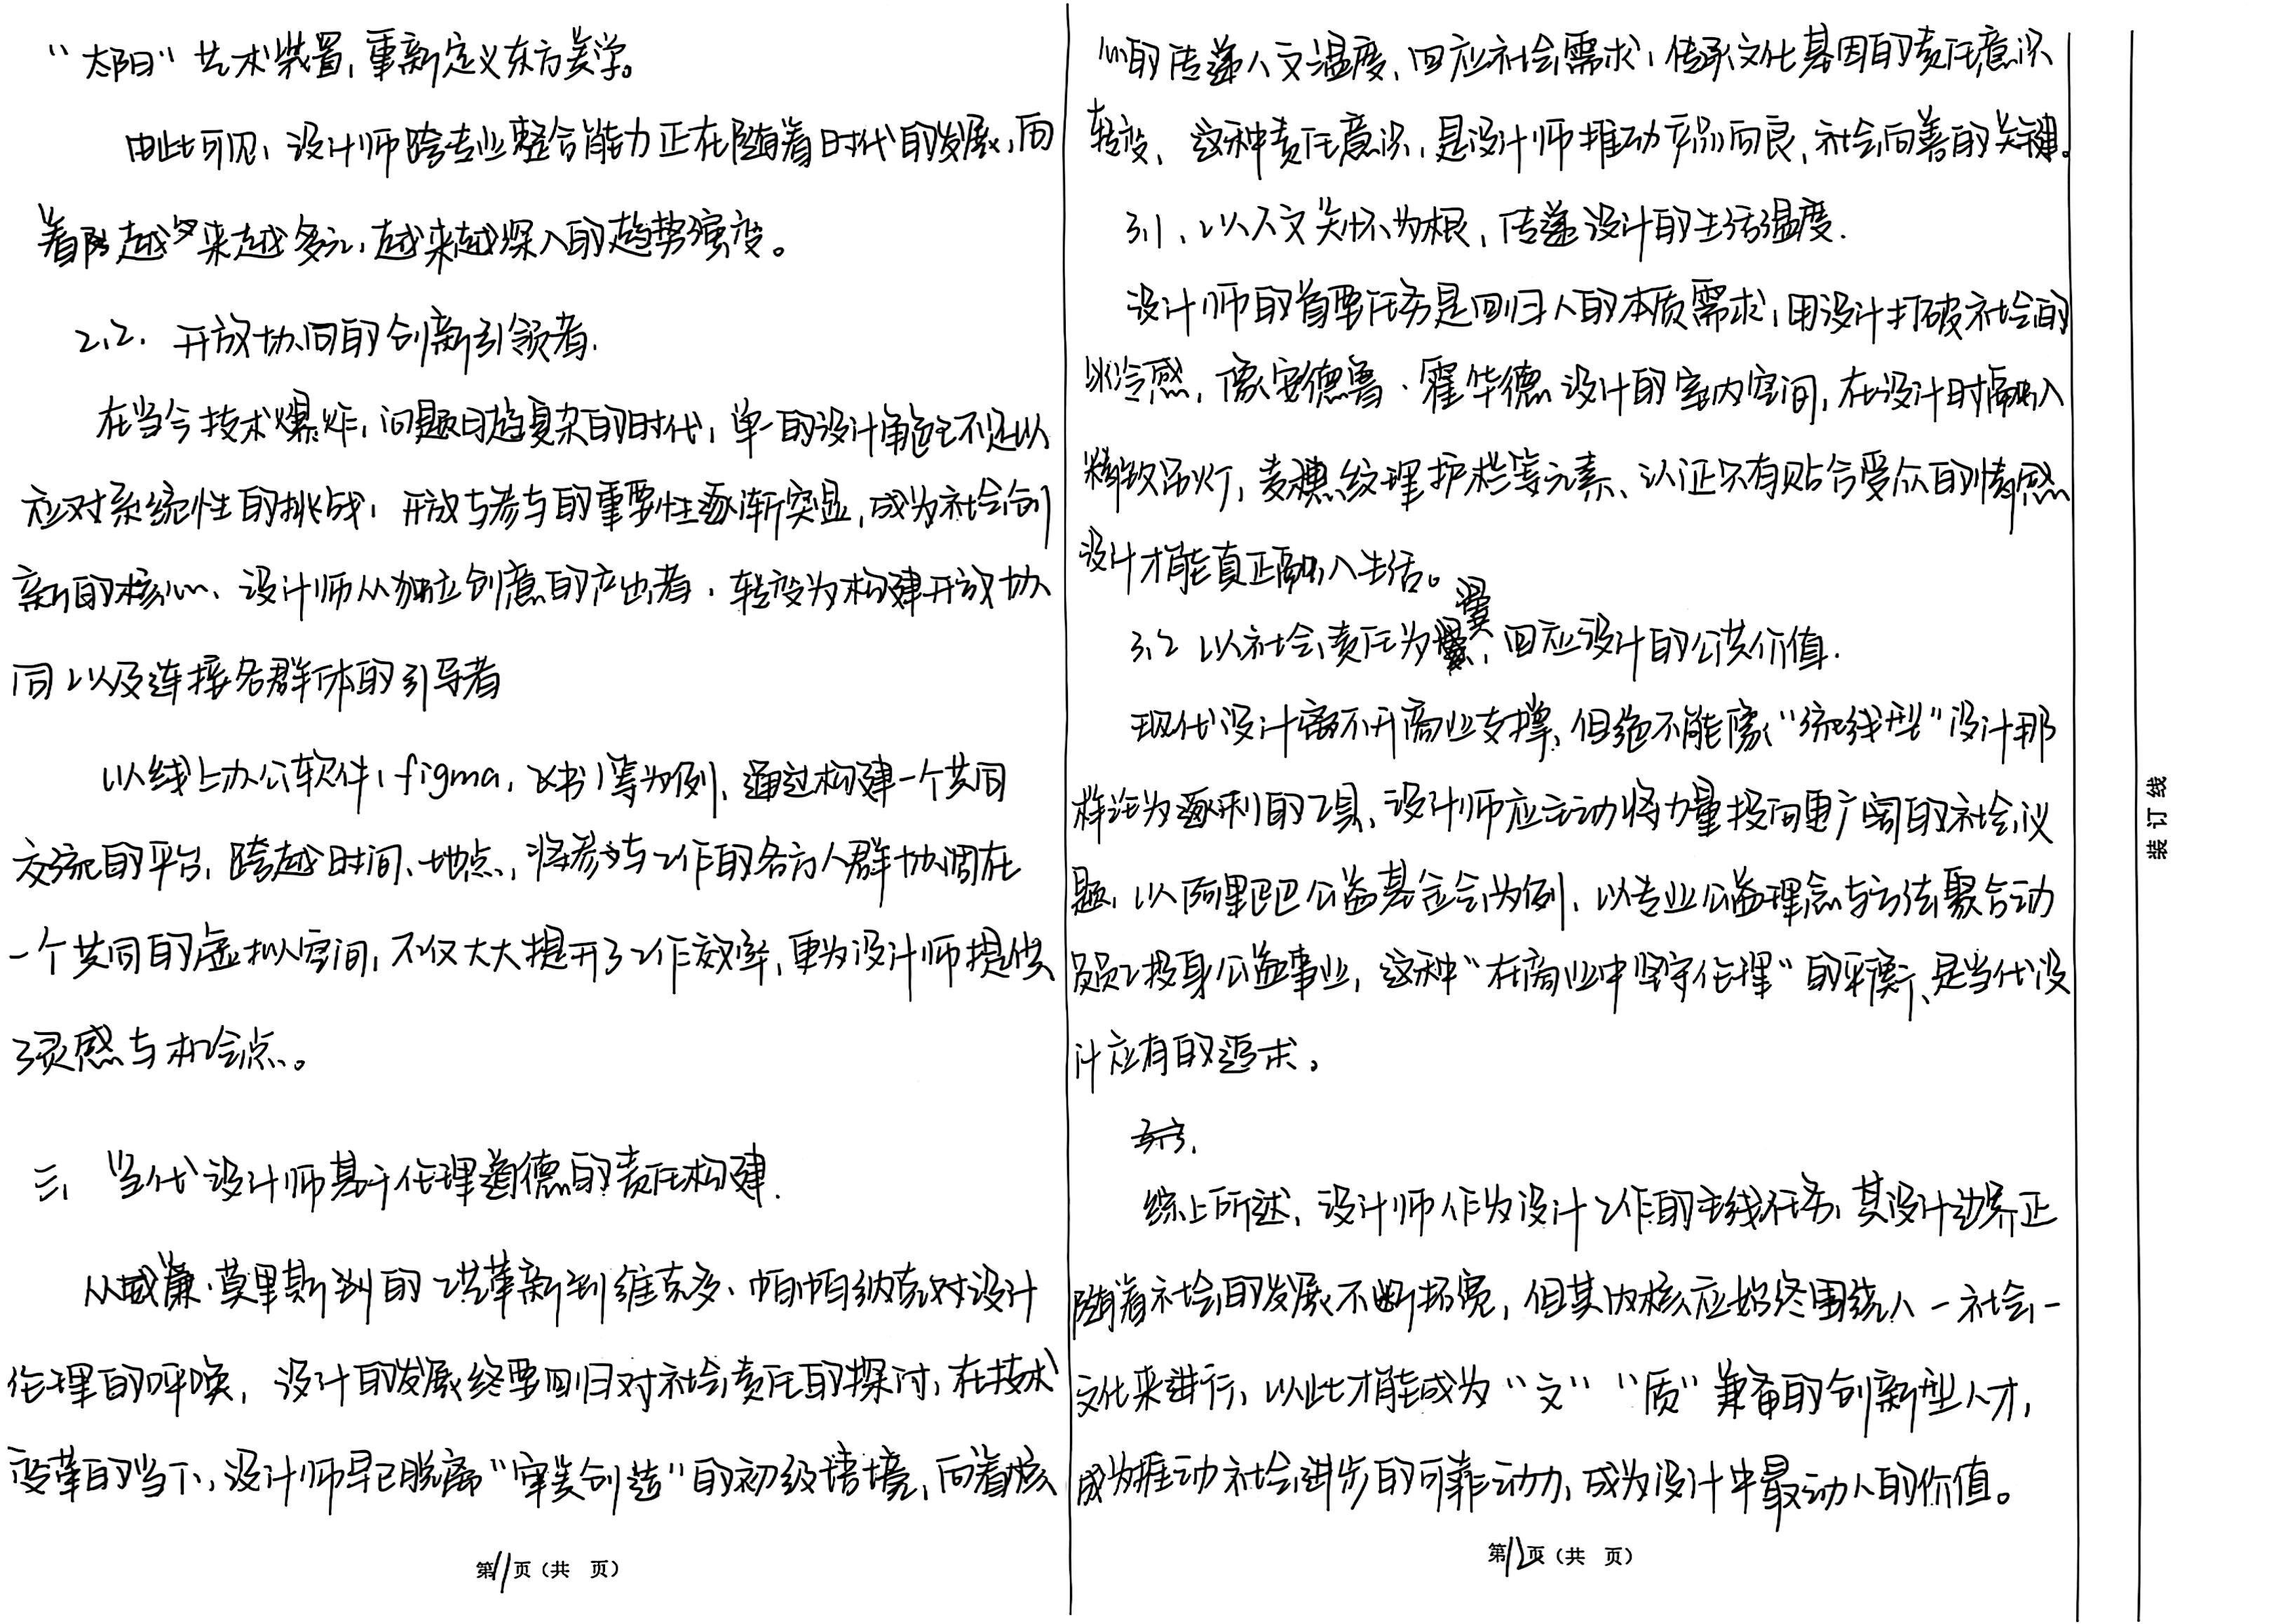 “太阳”艺术装置，重新定义东方美学。
由此可见，设计师跨专业整合能力正在随着时代的发展，向
着越来越多元，越来越深入的趋势演变。
2.2. 开放协同的创新引领者.
在当今技术爆炸，问题日趋复杂的时代，单一的设计角色已不足以
应对系统性的挑战，开放与参与的重要性逐渐突显，成为社会创
新的核心、设计师从独立创意的产出者，转变为构建开放协
同以及连接各群体的引导者
以线上办公软件（figma，飞书）等为例，通过构建一个共同
交流的平台，跨越时间、地点，将参与工作的各方人群协调在
一个共同的虚拟空间，不仅大大提升了工作效率，更为设计师提供
了灵感与机会点。
三、当代设计师基于伦理道德的责任构建.
从威廉·莫里斯的工艺革新到维克多·帕帕纳克对设计
伦理的呼唤，设计的发展终要回归对社会责任的探讨，在技术
变革的当下，设计师早已脱离“审美创造”的初级语境，向着核
第11页（共 页）
心的传递人文温度、回应社会需求，传承文化基因的责任意识
转变、这种责任意识，是设计师推动产品向良、社会向善的关键。
3.1、以人文关怀为根，传递设计的生活温度.
设计师的首要任务是回归人的本质需求，用设计打破社会的
冰冷感，像安德鲁·霍华德设计的室内空间，在设计时融入
精致吊灯，麦穗纹理护栏等元素、认证只有贴合受众的情感
设计才能真正融入生活。
3.2 以社会责任为翼，回应设计的公共价值.
现代设计离不开商业支撑，但绝不能像“流线型”设计那
样沦为逐利的工具、设计师应主动将力量投向更广阔的社会议
题，以阿里巴巴公益基金会为例、以专业公益理念与方法聚合动
员员工投身公益事业，这种“在商业中坚守伦理”的平衡、是当代设
计应有的追求。
综上所述，设计师作为设计工作的主线任务，其设计边界正
随着社会的发展不断拓宽，但其内核应始终围绕人－社会－
文化来进行，以此才能成为“文”“质”兼备的创新型人才，
成为推动社会进步的可靠动力，成为设计中最动人的价值。
第12页（共 页）
装订线